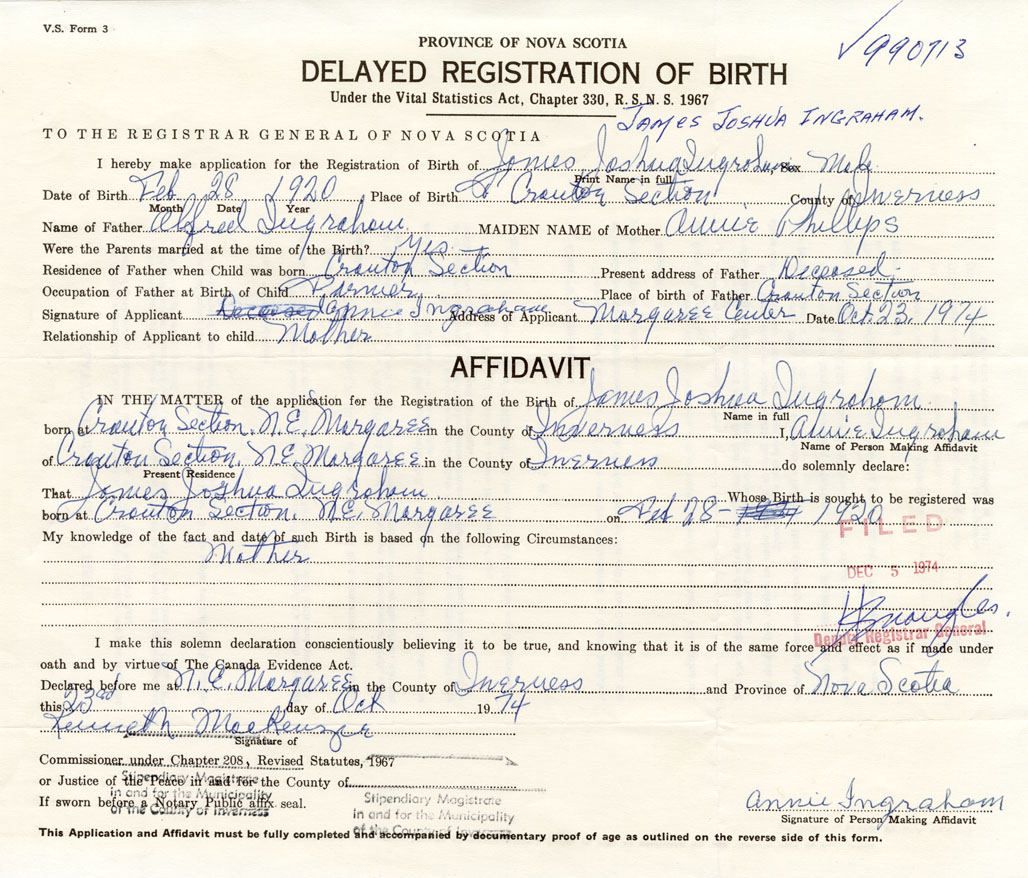 V.S. Form 3
√990713
PROVINCE OF NOVA SCOTIA
DELAYED REGISTRATION OF BIRTH
Under the Vital Statistics Act, Chapter 330, R.S.N.S. 1967
JAMES JOSHUA INGRAHAM.
TO THE REGISTRAR GENERAL OF NOVA SCOTIA
I hereby make application for the Registration of Birth of James Joshua Ingraham Sex Male
Print Name in full
Date of Birth Feb 28 1920 Place of Birth Cranton Section County of Inverness
Month Date Year
Name of Father Alfred Ingraham MAIDEN NAME of Mother Annie Phillips
Were the Parents married at the time of the Birth? Yes
Residence of Father when Child was born Cranton Section Present address of Father Deceased.
Occupation of Father at Birth of Child Farmer Place of birth of Father Cranton Section
Signature of Applicant Annie Ingraham Address of Applicant Margaree Center Date Oct. 23, 1974
Relationship of Applicant to child Mother
AFFIDAVIT
IN THE MATTER of the application for the Registration of the Birth of James Joshua Ingraham
Name in full
born at Cranton Section, N.E. Margaree in the County of Inverness I, Annie Ingraham
Name of Person Making Affidavit
of Cranton Section, N.E. Margaree in the County of Inverness do solemnly declare:
Present Residence
That James Joshua Ingraham Whose Birth is sought to be registered was
born at Cranton Section, N.E. Margaree on Feb 28- 1920
FILED
My knowledge of the fact and date of such Birth is based on the following Circumstances:
Mother
DEC 5 1974
Deputy Registrar General
I make this solemn declaration conscientiously believing it to be true, and knowing that it is of the same force and effect as if made under
oath and by virtue of The Canada Evidence Act.
Declared before me at N.E. Margaree in the County of Inverness and Province of Nova Scotia
this 23rd day of Oct 1974
Kenneth MacKenzie
Signature of
Commissioner under Chapter 208, Revised Statutes, 1967
or Justice of the Peace in and for the County of
If sworn before a Notary Public affix seal.
Stipendiary Magistrate
in and for the Municipality
of the County of Inverness
Stipendiary Magistrate
in and for the Municipality
of the County of Inverness
Annie Ingraham
Signature of Person Making Affidavit
This Application and Affidavit must be fully completed and accompanied by documentary proof of age as outlined on the reverse side of this form.